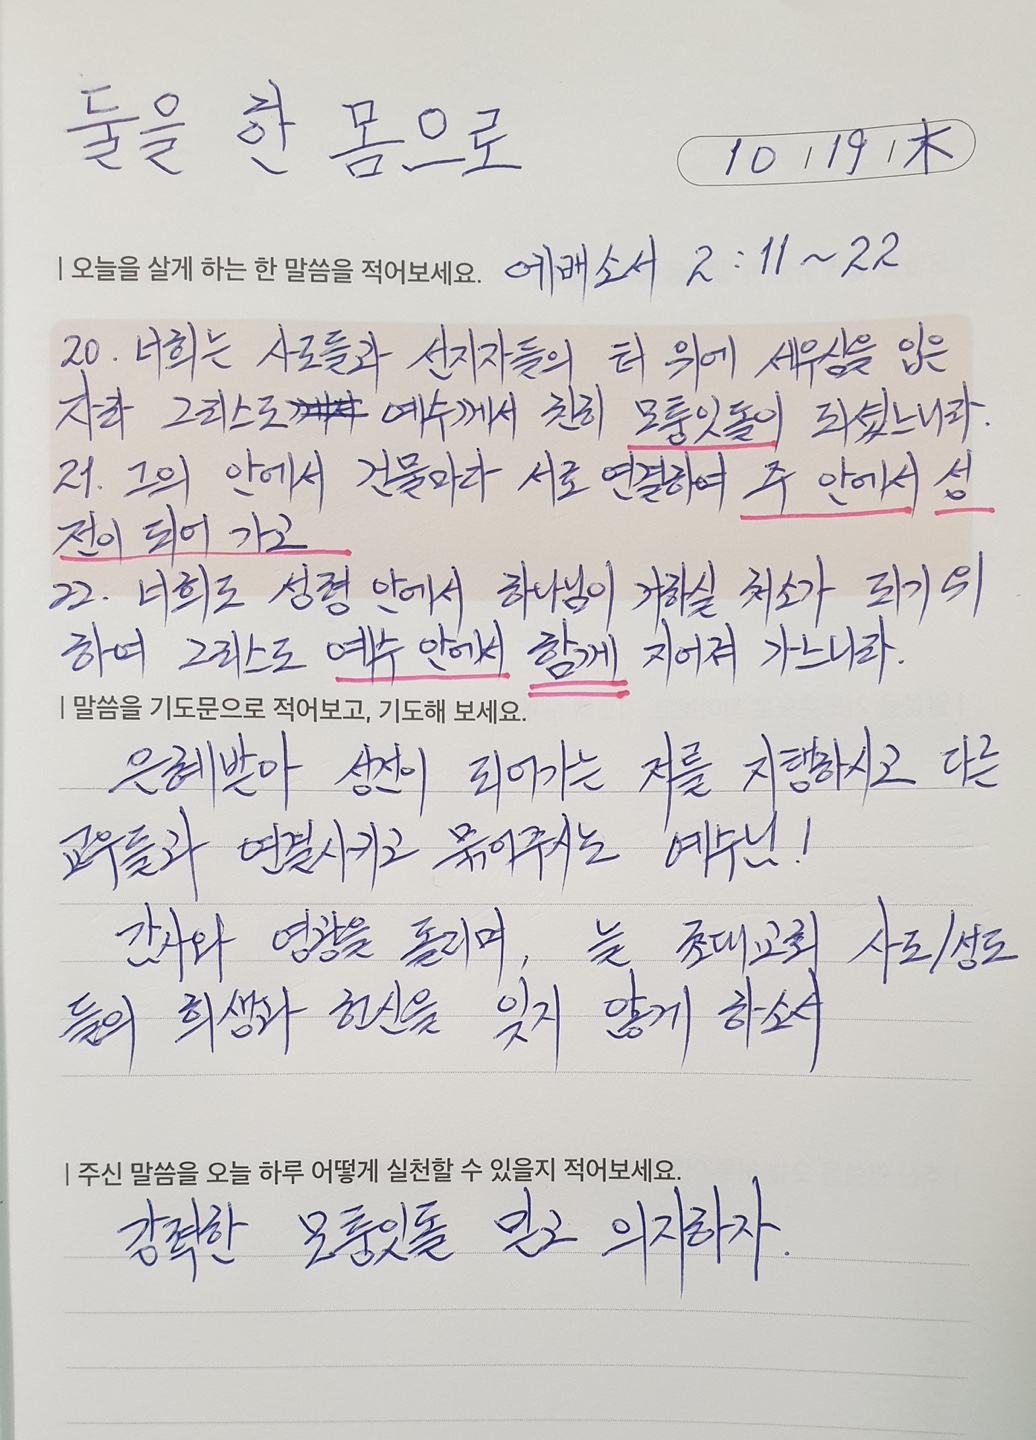 둘을 한 몸으로
10 / 19 / 木
| 오늘을 살게 하는 한 말씀을 적어보세요. 에배소서 2:11~22
20. 너희는 사도들과 선지자들의 터 위에 세우심을 입은
자라 그리스도 예수께서 친히 모퉁잇돌이 되셨느니라.
21. 그의 안에서 건물마다 서로 연결하여 주 안에서 성
전이 되어 가고
22. 너희도 성령 안에서 하나님이 거하실 처소가 되기 위
하여 그리스도 예수 안에서 함께 지어져 가느니라.
| 말씀을 기도문으로 적어보고, 기도해 보세요.
은혜받아 성전이 되어가는 저를 지행하시고 다른
교우들과 연결시키고 묶어주시는 예수님!
감사와 영광을 돌리며, 늘 초대교회 사도/성도
들의 희생과 헌신을 잊지 않게 하소서
| 주신 말씀을 오늘 하루 어떻게 실천할 수 있을지 적어보세요.
강력한 모퉁잇돌 믿고 의지하자.